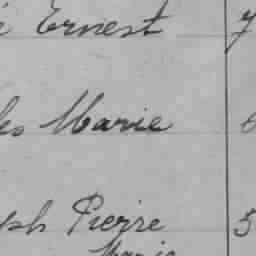 Ernest 7
Marie
ph Pierre 5
Marie